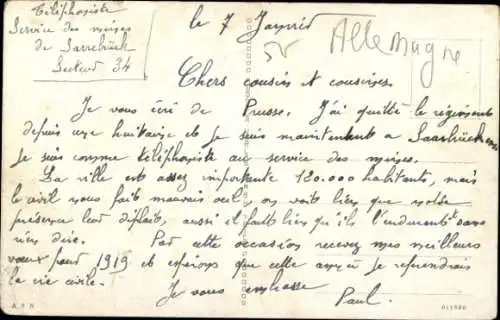 Téléphoniste
Service des mines
de Sarrebrück
Secteur 34
le 7 Janvier
Allemagne
Chers cousins et cousines.
Je vous écris de Prusse. J'ai quitté le régiment
depuis une huitaine et je suis maintenant a Saarbrücken
je suis comme téléphoniste au service des mines.
La ville est assez importante 130.000 habitants, mais
le civil nous fait mauvais oeil, on voit bien que notre
présence leur déplait, aussi il faut bien qu'ils l'endurent sans
rien dire. Par cette occasion recevez mes meilleurs
voeux pour 1919 et espérons que cette année je reprendrais
la vie civile.
Je vous embrasse
Paul.
A. P. N
011980